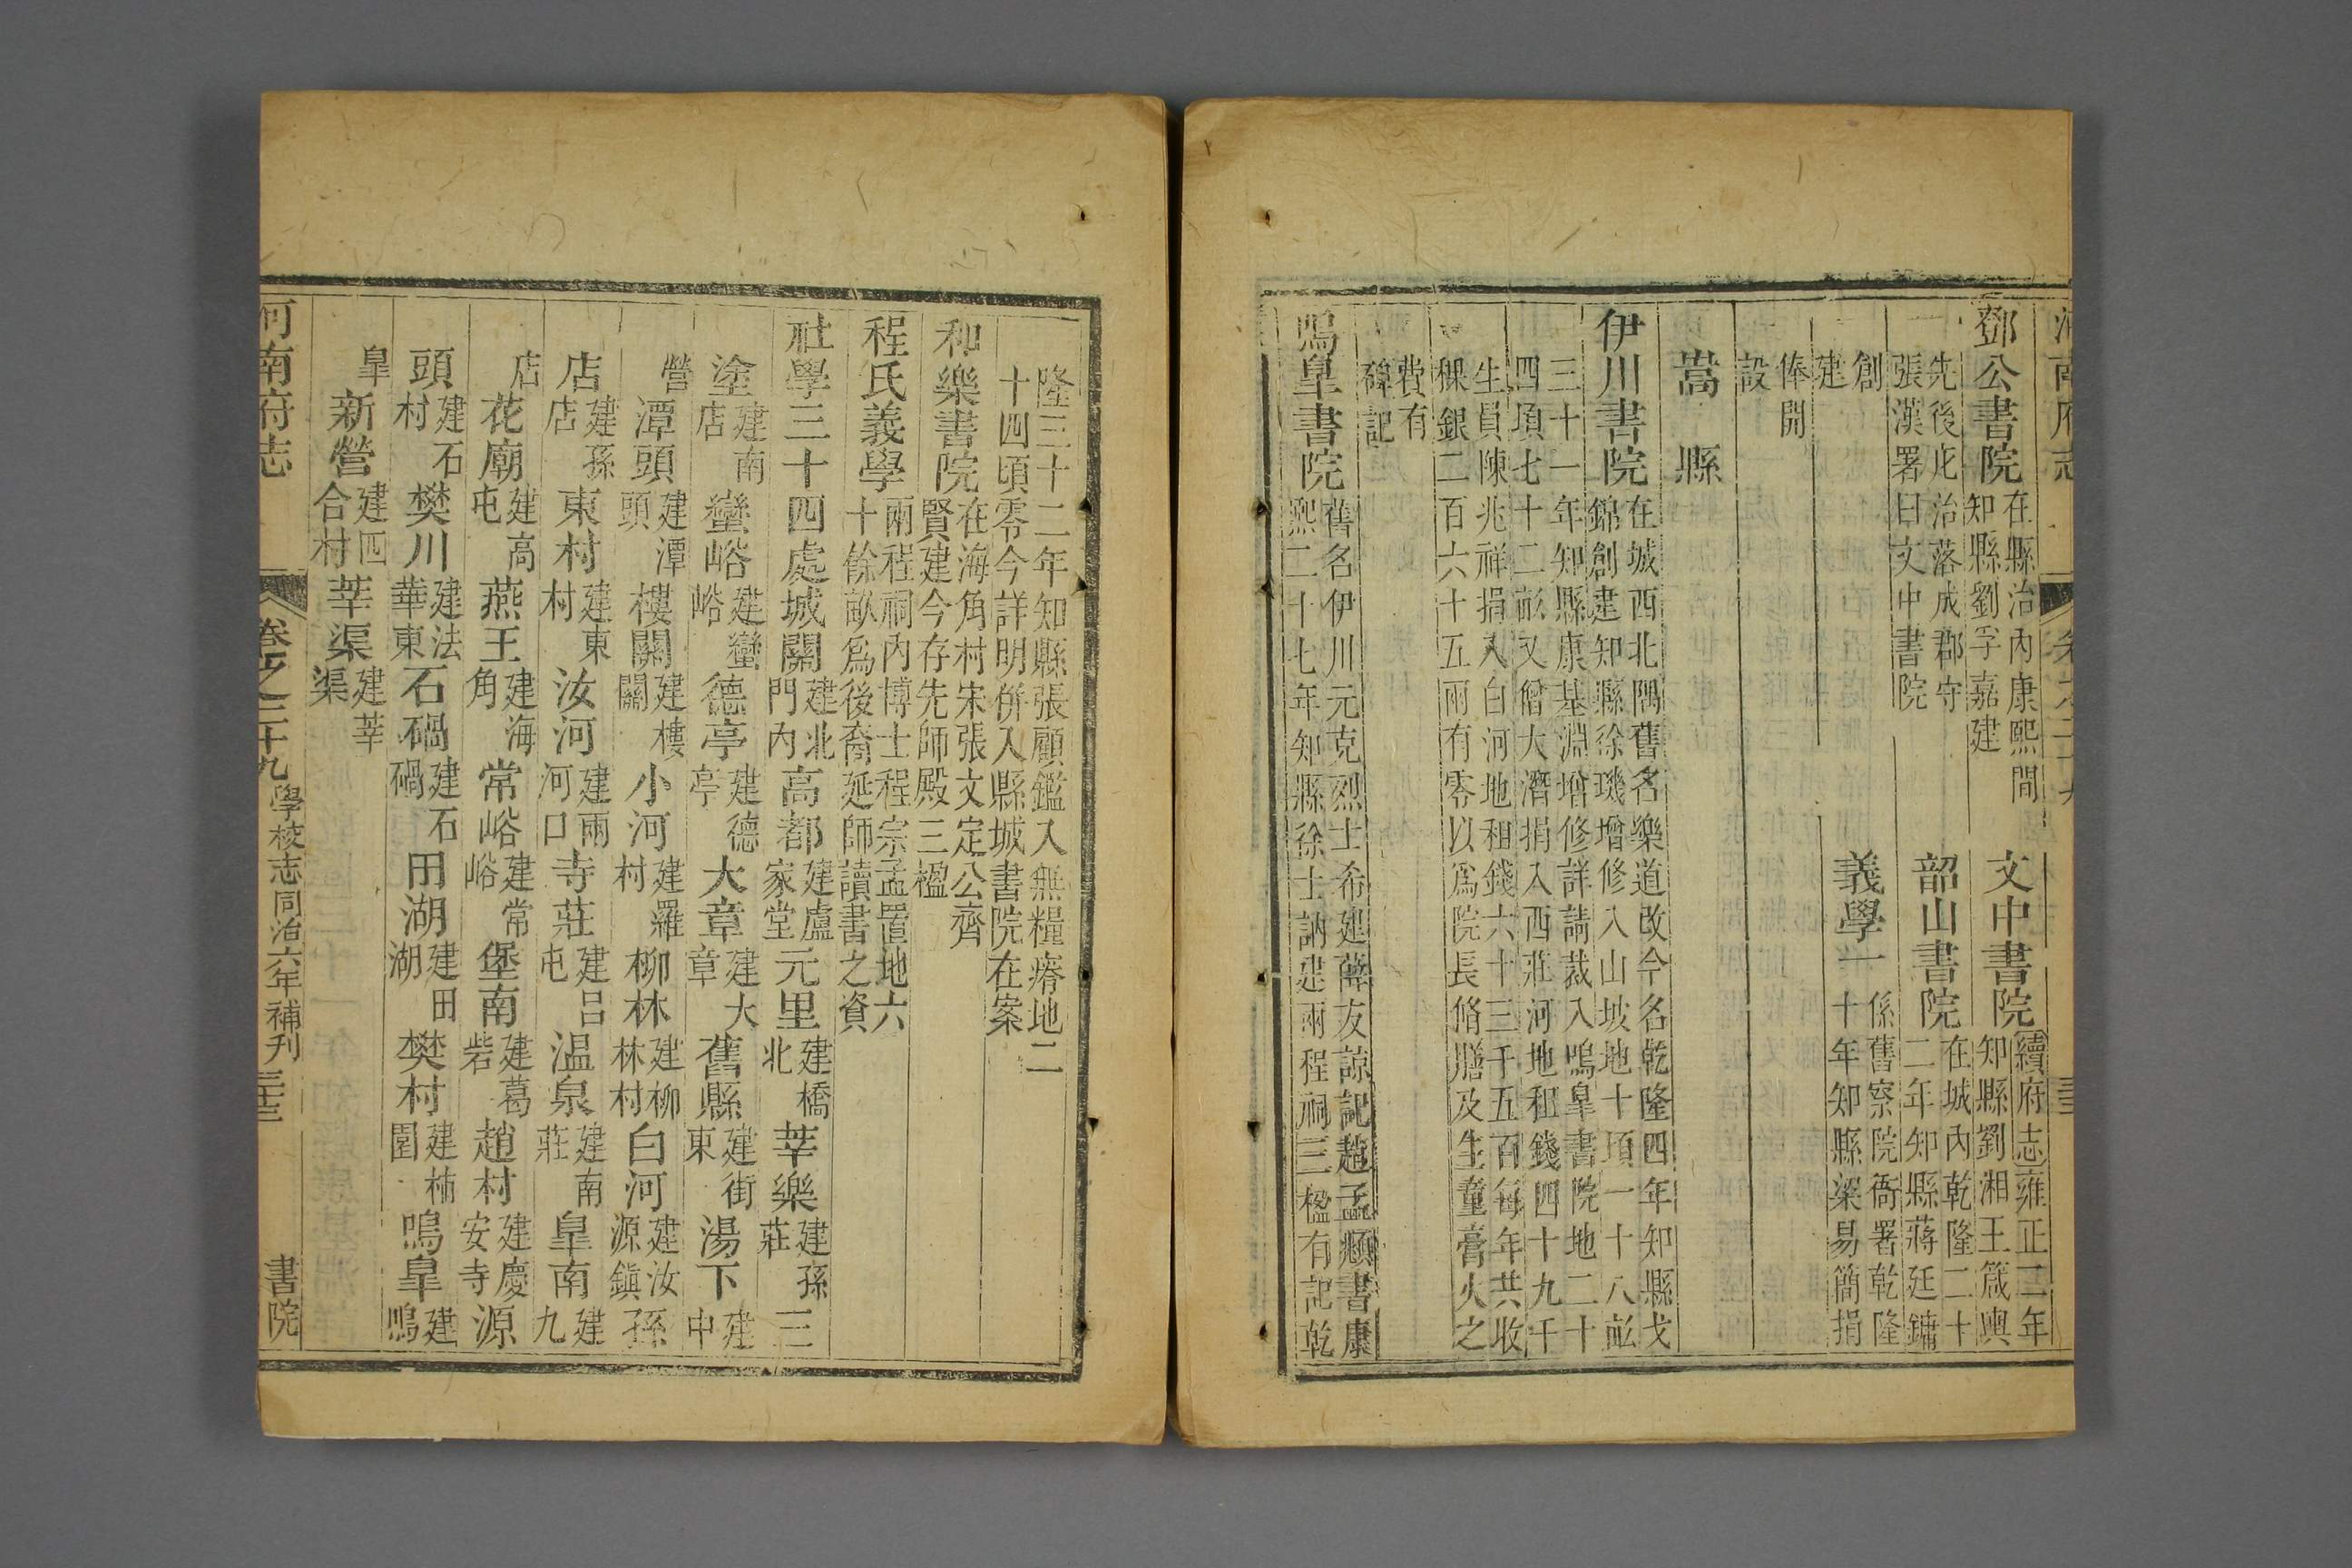 鄧公書院在縣治內康熙間知縣劉孚嘉建　文中書院續府志雍正二年知縣劉湘王箴輿
先後庀治落成郡守張漢署曰文中書院　韶山書院在城內乾隆二十二年知縣蔣廷鏞
創建　義學一係舊察院衙署乾隆十年知縣梁易簡捐
俸開設
嵩縣
伊川書院在城西北隅舊名樂道改今名乾隆四年知縣戈錦創建知縣徐璣增修入山坡地十頃一十八畝
三十一年知縣康基淵增修詳請裁入鳴臯書院地二十四頃七十二畝又僧大濟捐入西莊河地租錢四十九千
生員陳兆祥捐入白河地租錢六十三千五百每年共收稞銀二百六十五兩有零以爲院長脩膳及生童膏火之
費有碑記
鳴臯書院舊名伊川元克烈士希建薛友諒記趙孟頫書康熙二十七年知縣徐士訥建兩程祠三楹有記乾
隆三十二年知縣張顧鑑入無糧瘠地二十四頃零今詳明併入縣城書院在案
和樂書院在海角村宋張文定公齊賢建今存先師殿三楹
程氏義學兩程祠內博士程宗孟置地六十餘畝爲後裔延師讀書之資
社學三十四處城關建北門內高都建盧家堂元里建橋北莘樂建孫莊三
塗建南店蠻峪建蠻峪德亭建德亭大章建大章舊縣建街東湯下建中
營潭頭建潭頭樓關建樓關小河建羅村柳林建柳林村白河建汝源鎮孫
店建孫店東村建東村汝河建兩河口寺莊建呂屯温泉建南莊臯南建九
店花廟建高屯燕王建海角常峪建常峪堡南建葛砦趙村建慶安寺源
頭建石村樊川建法華東石碢建石碢田湖建田湖樊村建柿園鳴臯建鳴
臯新營建四合村莘渠建莘渠
河南府志　卷之二十九　學校志同治六年補刊　書院